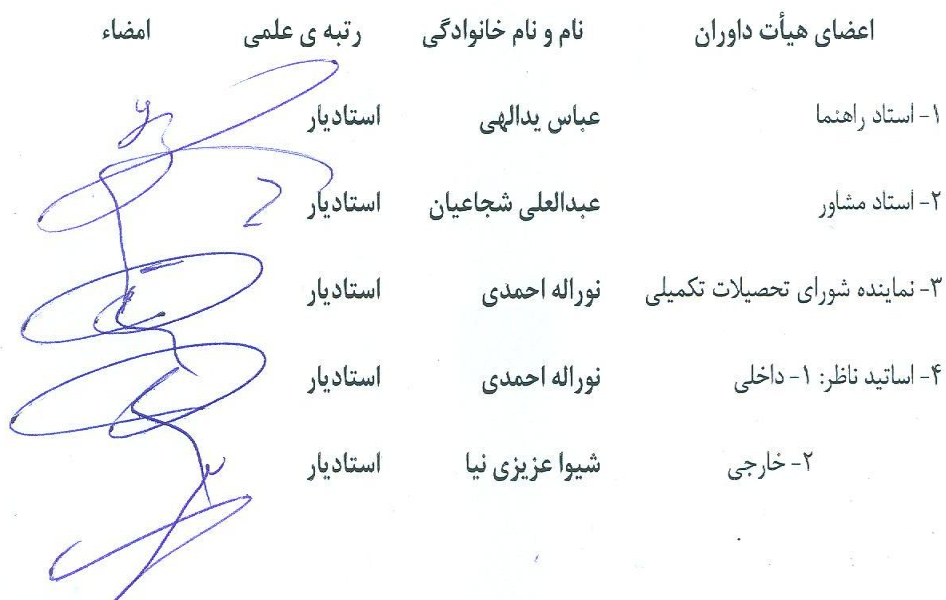 اعضای هیأت داوران نام و نام خانوادگی رتبه ی علمی امضاء
۱- استاد راهنما عباس یدالهی استادیار
۲- استاد مشاور عبدالعلی شجاعیان استادیار
۳- نماینده شورای تحصیلات تکمیلی نوراله احمدی استادیار
۴- اساتید ناظر: ۱- داخلی نوراله احمدی استادیار
۲- خارجی شیوا عزیزی نیا استادیار